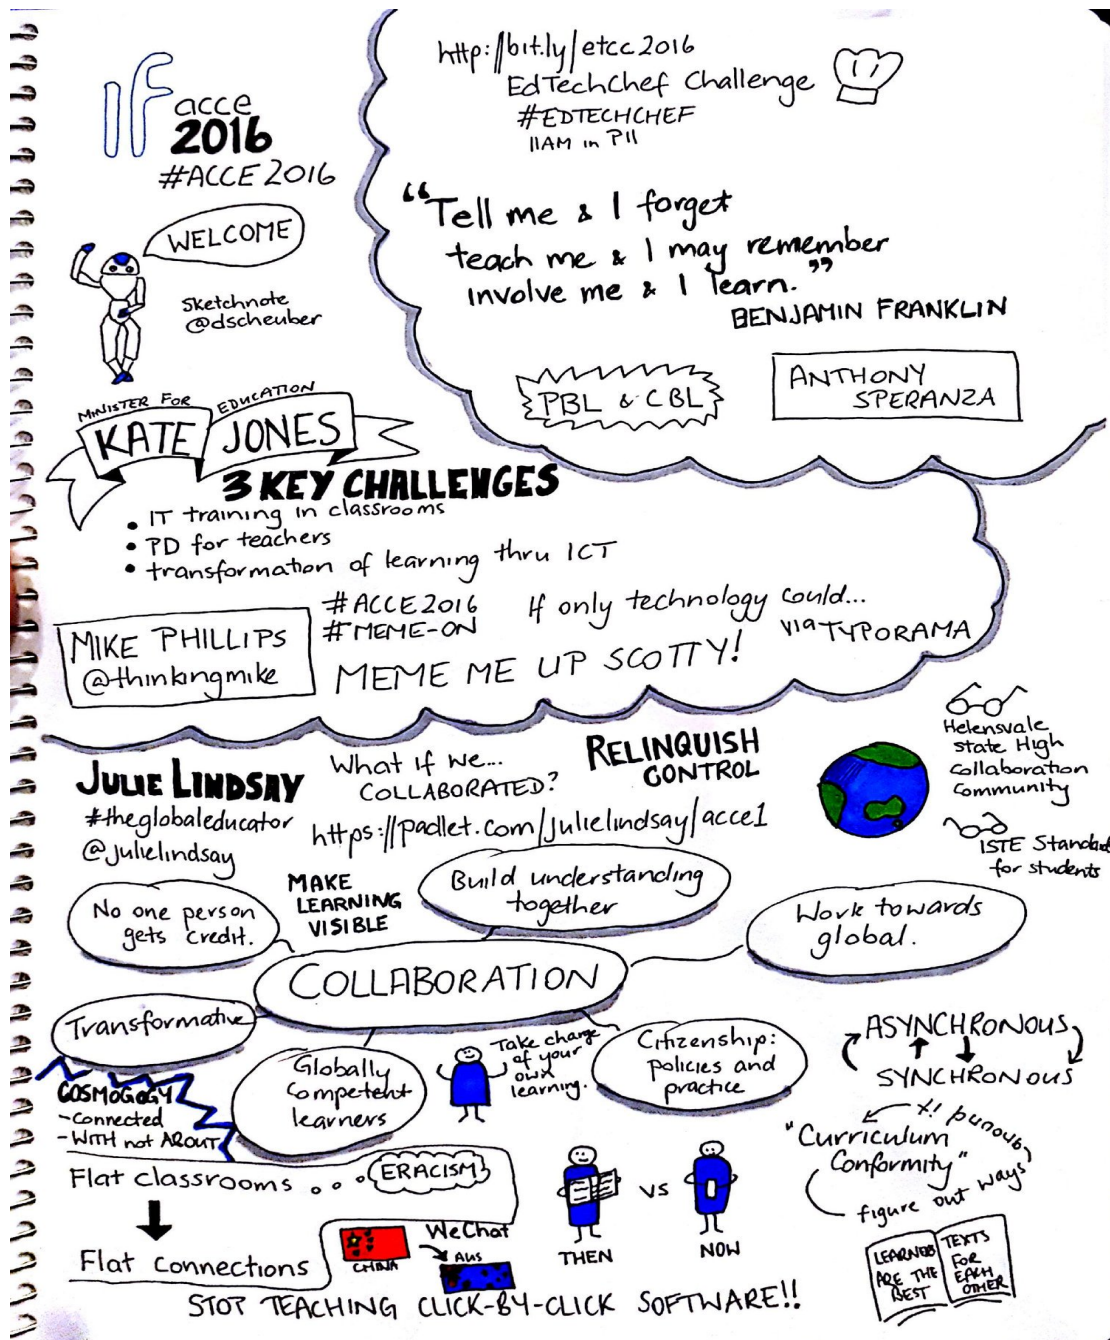 IF acce
2016
#ACCE2016
WELCOME
Sketchnote
@dscheuber
http://bit.ly/etcc2016
EdTechChef Challenge
#EDTECHCHEF
11AM in P11
“Tell me & I forget
teach me & I may remember
involve me & I learn.”
BENJAMIN FRANKLIN
PBL & CBL
ANTHONY
SPERANZA
MINISTER FOR EDUCATION
KATE JONES
3 KEY CHALLENGES
• IT training in classrooms
• PD for teachers
• transformation of learning thru ICT
MIKE PHILLIPS
@thinkingmike
#ACCE2016
#MEME-ON
If only technology could...
via TYPORAMA
MEME ME UP SCOTTY!
JULIE LINDSAY
#theglobaleducator
@julielindsay
What if we...
COLLABORATED?
RELINQUISH
CONTROL
https://padlet.com/julielindsay/acce1
Helensvale
State High
Collaboration
Community
ISTE Standards
for students
MAKE
LEARNING
VISIBLE
No one person
gets credit.
Build understanding
together
Work towards
global.
COLLABORATION
Transformative
Globally
Competent
learners
Take charge
of your
own
learning.
Citizenship:
policies and
practice
ASYNCHRONOUS
SYNCHRONOUS
COSMOGOGY
- Connected
- WITH not ABOUT
Flat classrooms
ERACISM
Flat Connections
WeChat
CHINA
AUS
THEN
VS
NOW
"Curriculum
Conformity"
figure out ways
around it
LEARNERS
ARE THE
BEST
TEXTS
FOR
EACH
OTHER
STOP TEACHING CLICK-BY-CLICK SOFTWARE!!